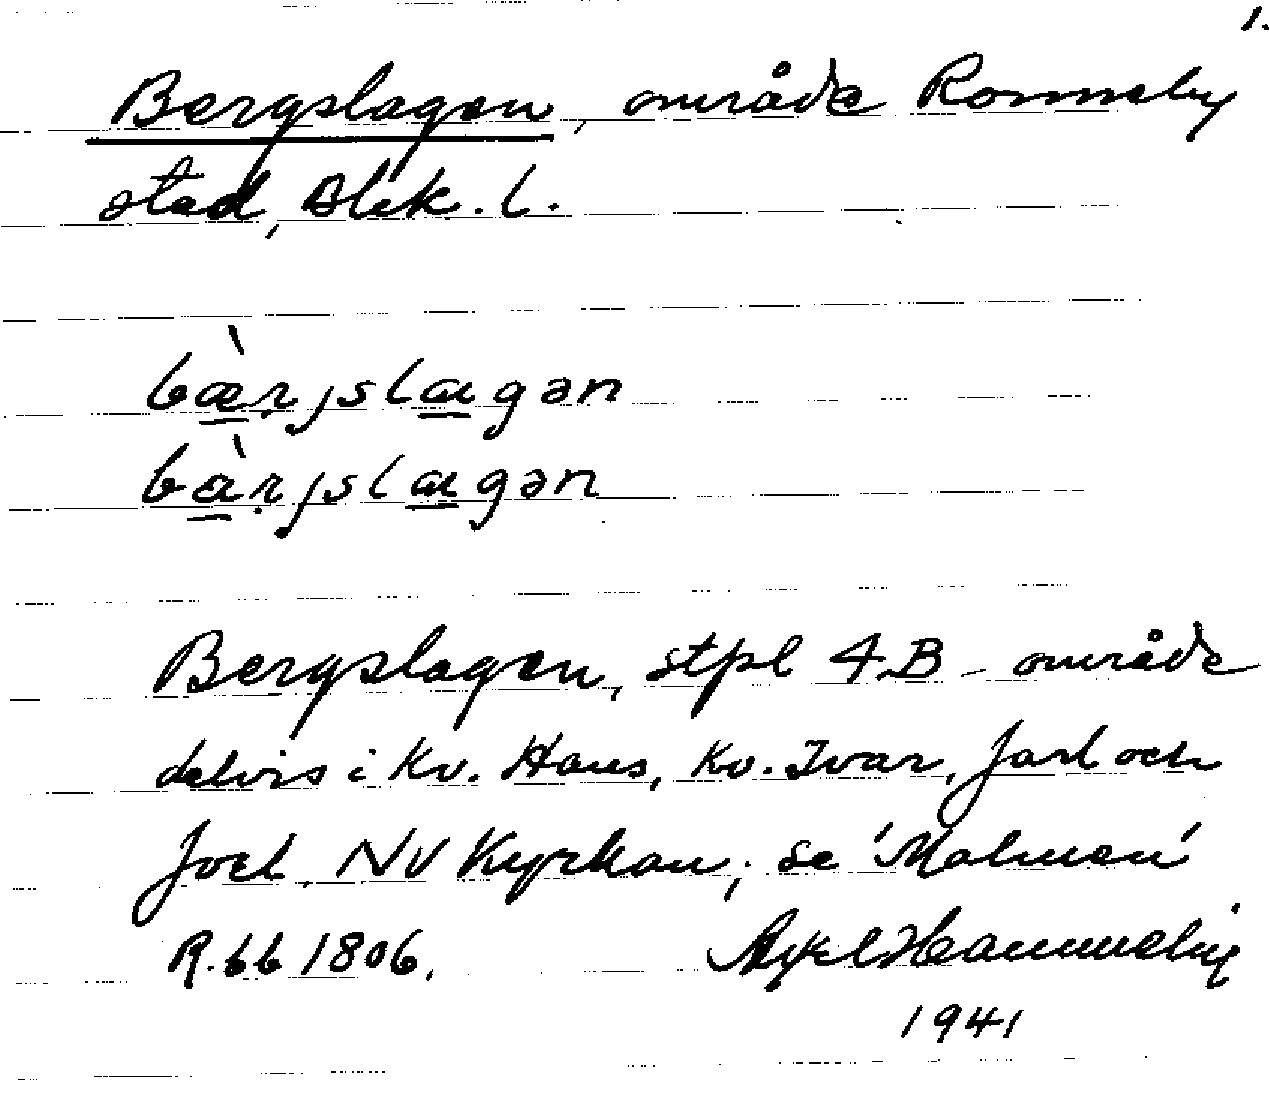 1.
Bergslagen, område Ronneby
stad, Blek. l.
bæ̀rjslagən
bàrjslagən
Bergslagen, stpl 4B - område
delvis i Kv. Hans, Kv. Ivar, Jarl och
Joel. NV Kyrkan; se 'Malmen'
R.bb 1806.
Axel Hammelin
1941